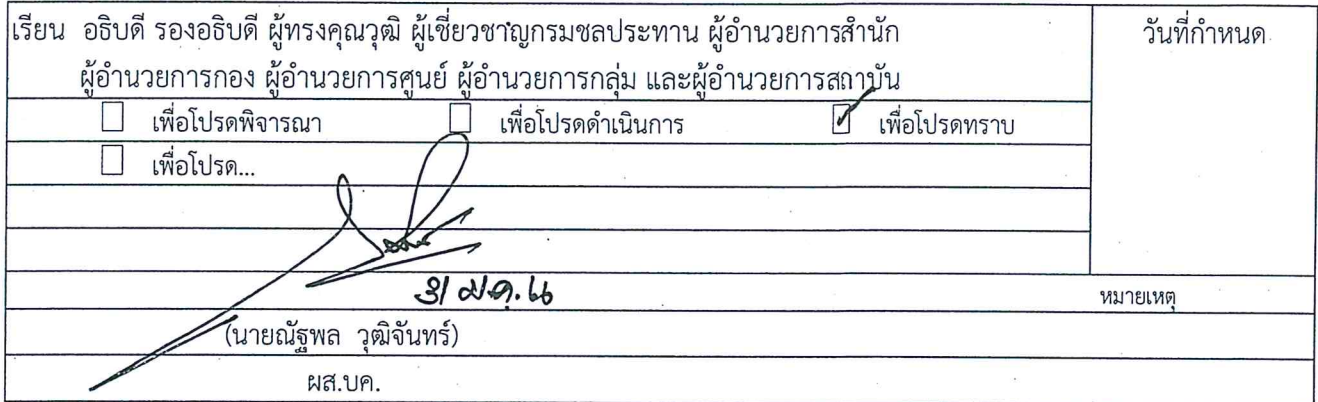 เรียน อธิบดี รองอธิบดี ผู้ทรงคุณวุฒิ ผู้เชี่ยวชาญกรมชลประทาน ผู้อำนวยการสำนัก
ผู้อำนวยการกอง ผู้อำนวยการศูนย์ ผู้อำนวยการกลุ่ม และผู้อำนวยการสถาบัน
วันที่กำหนด
เพื่อโปรดพิจารณา เพื่อโปรดดำเนินการ เพื่อโปรดทราบ
เพื่อโปรด...
31 มี.ค.
หมายเหตุ
(นายณัฐพล วุฒิจันทร์)
ผส.บค.